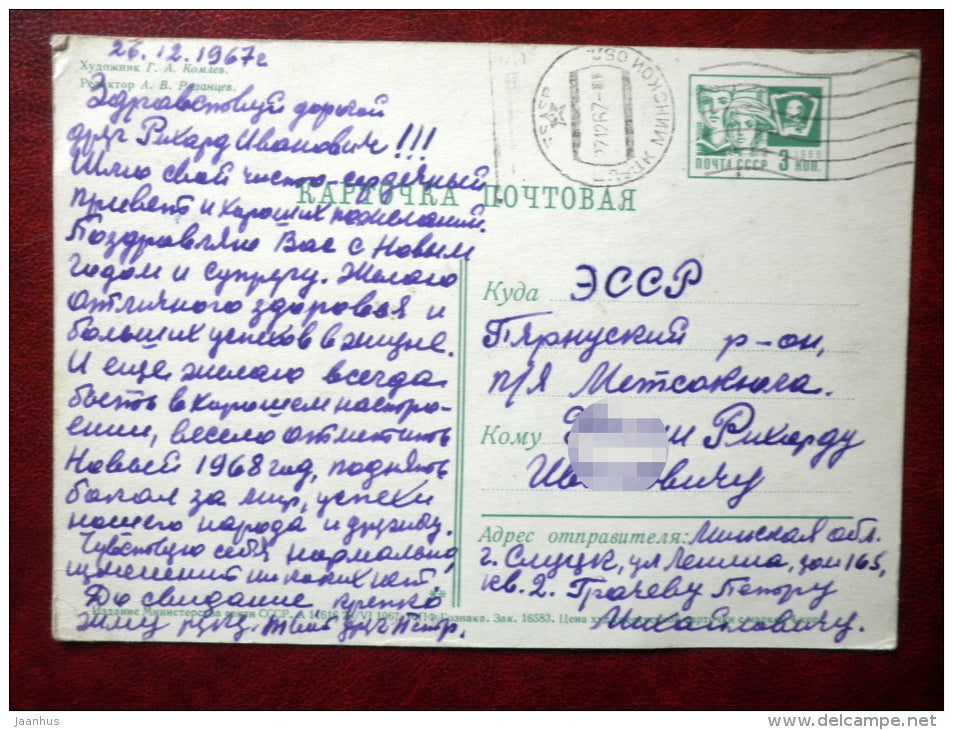 26.12.1967г
Художник Г. А. Комлев.
Редактор А. В. Рязанцев.
Здравствуй дорогой
друг Рихард Иванович!!!
Шлю свой чисто-сердечный
привет и хороших пожеланий.
Поздравляю Вас с Новым
годом и супругу. Желаю
отличного здоровья и
больших успехов в жизне.
И еще желаю всегда
быть в хорошем настро-
ении, весело отметить
Новый 1968 год, поднять
бокал за мир, успехи
нашего народа и дружбу.
Чувствую себя нормально,
изменений ни каких нет.
До свидание крепко
жму руку. Твой друг Петр.
КАРТОЧКА ПОЧТОВАЯ
27 12 67
МИНСКОЙ ОБЛ
ПОЧТА СССР 3 КОП.
1966
Куда ЭССР
Пярнуский р-он,
п/я Метсакюла.
Кому Рихарду
Ив овичу
Адрес отправителя: Минская обл.
г. Слуцк, ул Ленина, дом 165,
кв. 2. Грачеву Петру
Михайловичу.
Издание Министерства связи СССР. Зак. 16583. Цена
Jaanhus
delcampe.net